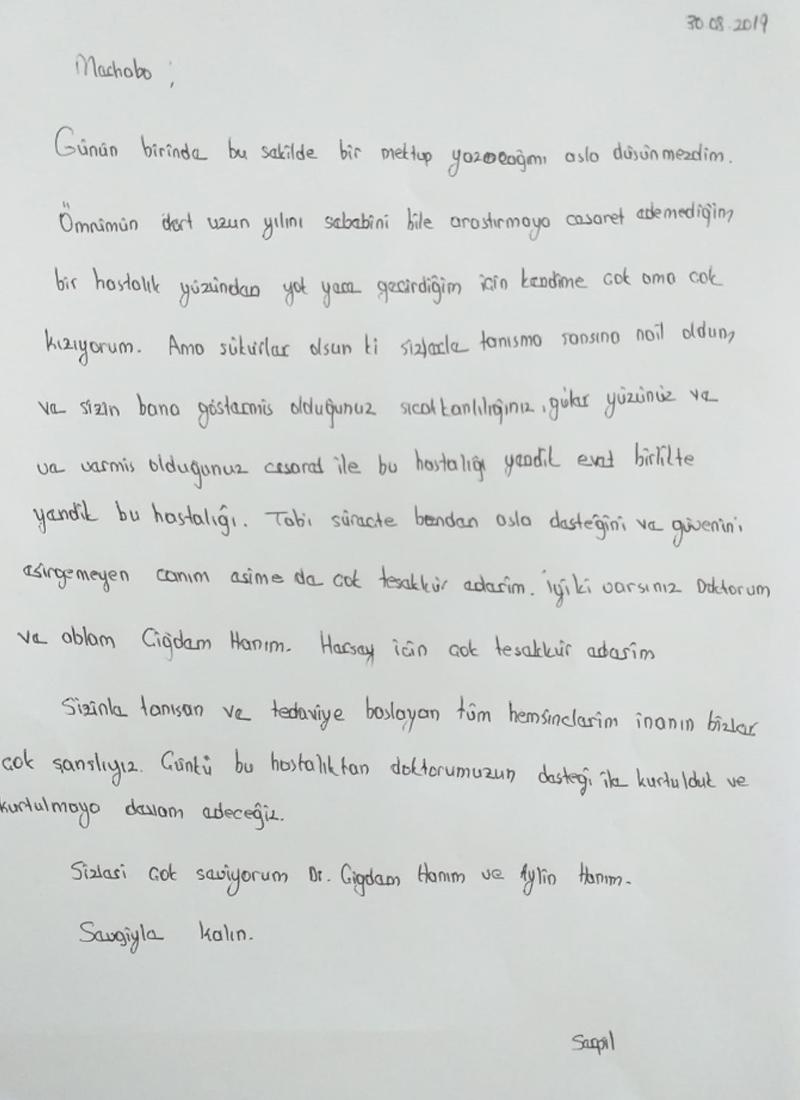 30.08.2019
Merhaba;
Günün birinde bu şekilde bir mektup yazacağımı asla düşünmezdim.
Ömrümün dört uzun yılını sebebini bile araştırmaya cesaret edemediğim
bir hastalık yüzünden yok yere geçirdiğim için kendime çok ama çok
kızıyorum. Ama şükürler olsun ki sizlerle tanışma şansına nail oldum,
ve sizin bana göstermiş olduğunuz sıcakkanlılığınız, güler yüzünüz ve
ve vermiş olduğunuz cesaret ile bu hastalığı yendik evet birlikte
yendik bu hastalığı. Tabi süreçte benden asla desteğini ve güvenini
esirgemeyen canım eşime de çok teşekkür ederim. İyi ki varsınız Doktorum
ve ablam Çiğdem Hanım. Herşey için çok teşekkür ederim
Sizinle tanışan ve tedaviye başlayan tüm hemcinslerim inanın bizler
çok şanslıyız. Çünkü bu hastalıktan doktorumuzun desteği ile kurtulduk ve
kurtulmaya devam edeceğiz.
Sizleri çok seviyorum Dr. Çiğdem Hanım ve Aylin Hanım.
Sevgiyle kalın.
Serpil